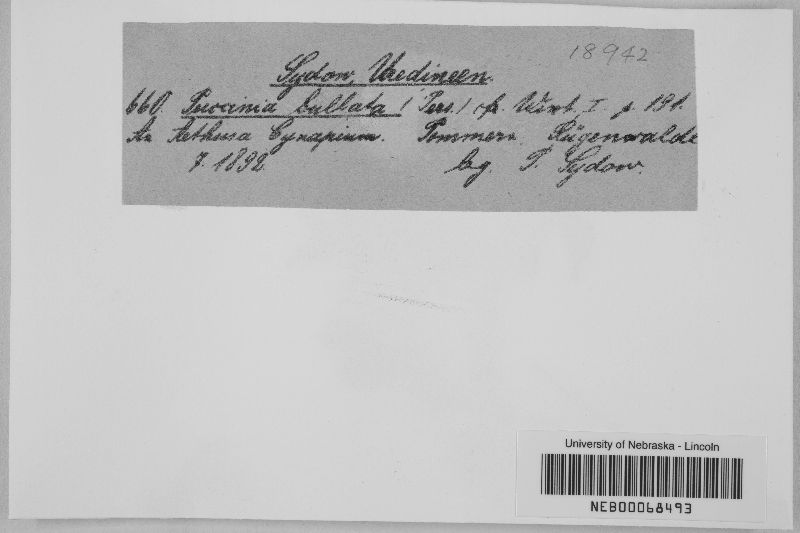 18942
Sydow, Uredineen.
660. Puccinia bullata (Pers.) cfr. Wint. I. p. 191.
An Aethusa Cynapium. Pommern. Rügenwalde
7. 1892. leg. P. Sydow.
University of Nebraska - Lincoln
NEB00068493